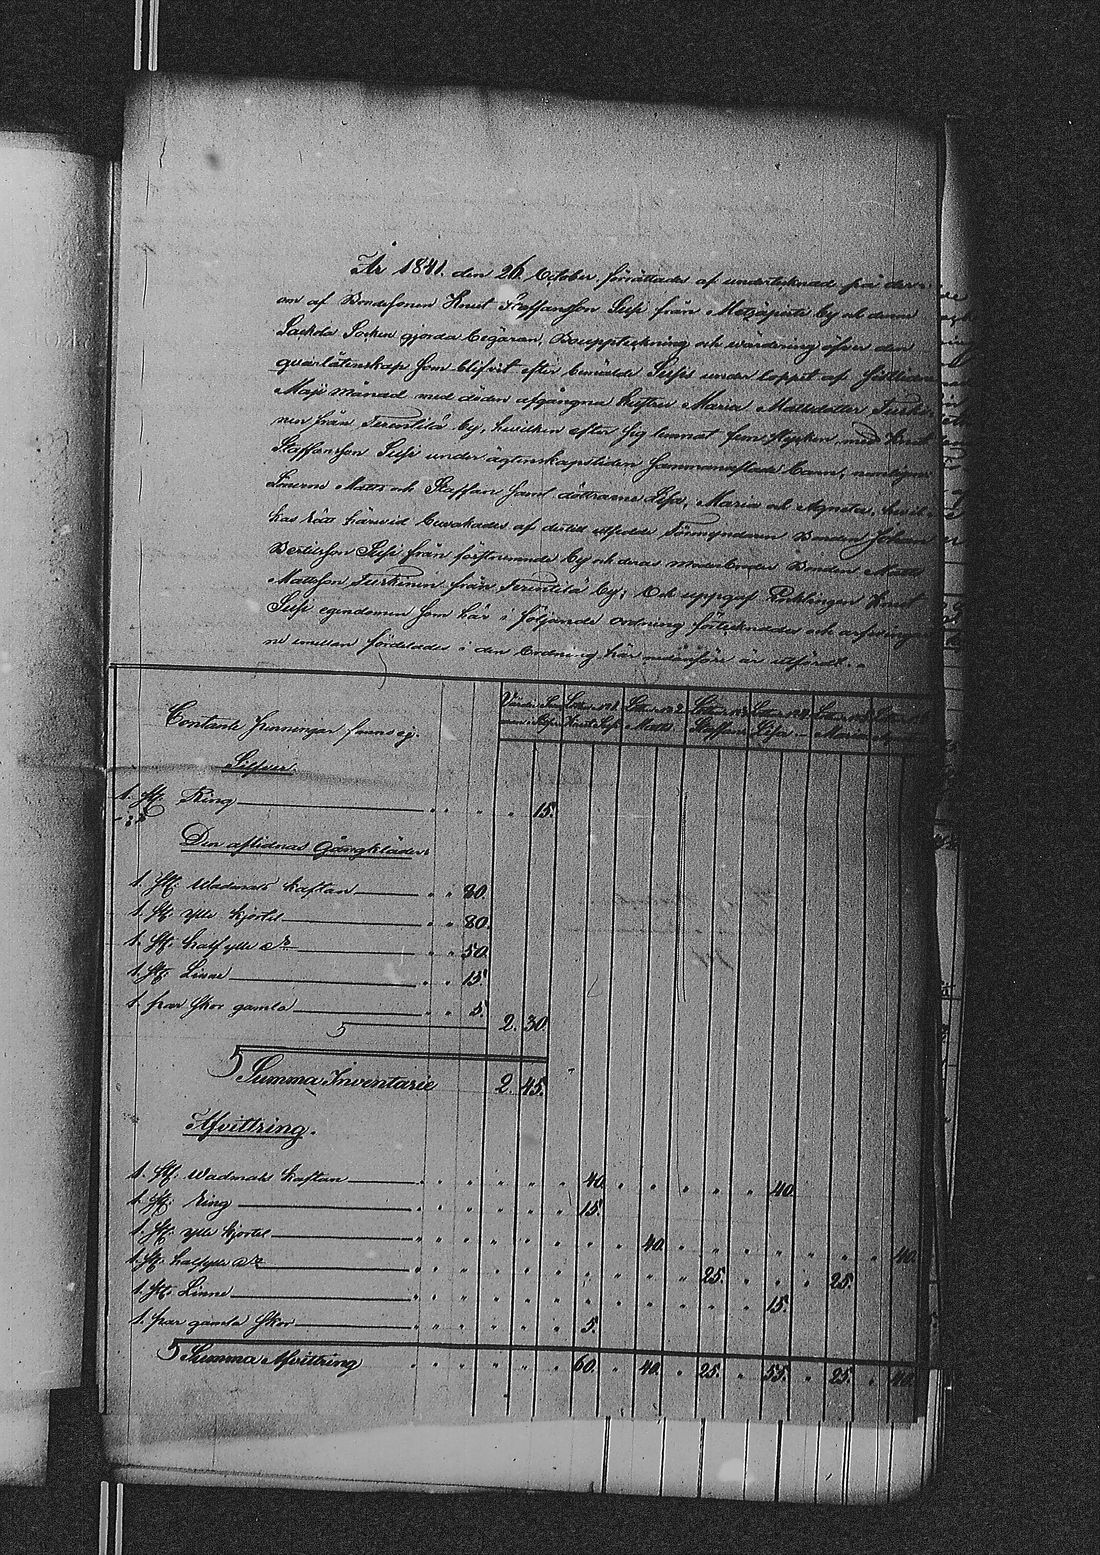 År 1841. den 26 October förrättades af undertecknad på der-
om af Bondesonen Knut Staffansson Susi från Metzäpirti by och denne
Sackola Socken gjorda begäran, Bouppteckning och wärdering öfver den
qvarlåtenskap som blifvit efter bemälde Susis under loppet af sistliden
Maji månad med döden afgångna hustru Maria Mattsdotter Turki-
nen från Terentilä by, hvilken efter sig lemnat fem stycken, med Knut
Staffansson Susi under ägtenskapstiden sammanaflade barn, nemligen
Sönerne Matts och Staffan samt döttrarne Lisa, Maria och Agneta, hvil-
kas rätt härvid bevakades af dertill utsedde Förmyndaren Bonden Johan
Bertilsson Susi från förstnemnde by och deras moderbroder Bonden Matts
Mattsson Turkinen från Terentilä by; Och uppgaf Enklingen Knut
Susi egendomen som här i följande ordning förtecknades och arfvingar-
ne emellan fördelades i den Ordning här nedanföre är utfördt.
Lotten N:1. Lotten N:2. Lotten N:3 Lotten N:4
Knut Susi Matts Staffan Lisa Maria
Contante penningar fanns ej.
Silfver.
1. st. Ring 15.
Den aflidnas Gångkläder.
1. st. Wadmals kaftan 80.
1. st. ylle kjortel 80.
1. st. halfylle d:o 50.
1. st. Linne 15.
1. par skor gamla 5.
2. 30.
Summa Inventarie 2. 45.
Afvittring.
1. st. Wadmals kaftan 40. 40.
1. st. ring 15.
1. st. ylle kjortel 40. 40.
1. st. halfylle d:o 25. 25.
1. st. Linne 15.
1. par gamla skor 5.
Summa Afvittring 60. 40. 25. 55. 25. 40.